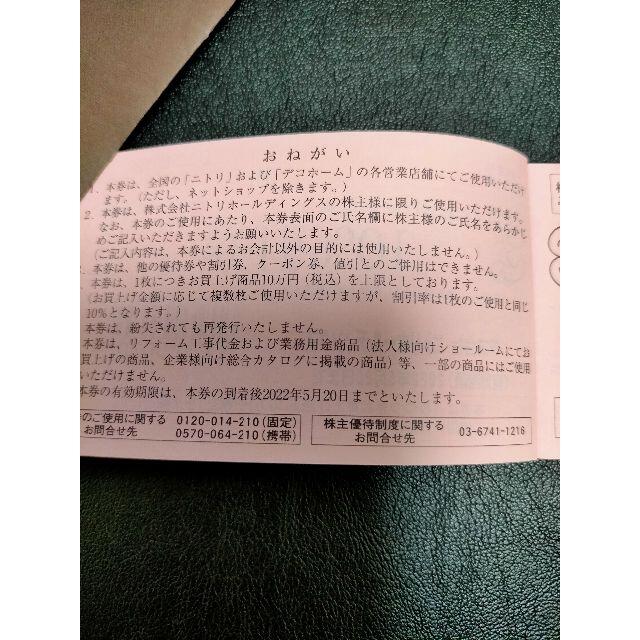 おねがい
1. 本券は、全国の「ニトリ」および「デコホーム」の各営業店舗にてご使用いただけ
ます。(ただし、ネットショップを除きます。)
2. 本券は、株式会社ニトリホールディングスの株主様に限りご使用いただけます。
なお、本券のご使用にあたり、本券表面のご氏名欄に株主様のご氏名をあらかじ
めご記入いただきますようお願いいたします。
(ご記入内容は、本券によるお会計以外の目的には使用いたしません。)
本券は、他の優待券や割引券、クーポン券、値引とのご併用はできません。
本券は、1枚につきお買上げ商品10万円(税込)を上限としております。
(お買上げ金額に応じて複数枚ご使用いただけますが、割引率は1枚のご使用と同じ
10%となります。)
本券は、紛失されても再発行いたしません。
本券は、リフォーム工事代金および業務用途商品(法人様向けショールームにてお
買上げの商品、企業様向け総合カタログに掲載の商品)等、一部の商品にはご使用
いただけません。
本券の有効期限は、本券の到着後2022年5月20日までといたします。
のご使用に関する
お問合せ先
0120-014-210(固定)
0570-064-210(携帯)
株主優待制度に関する
お問合せ先
03-6741-1216